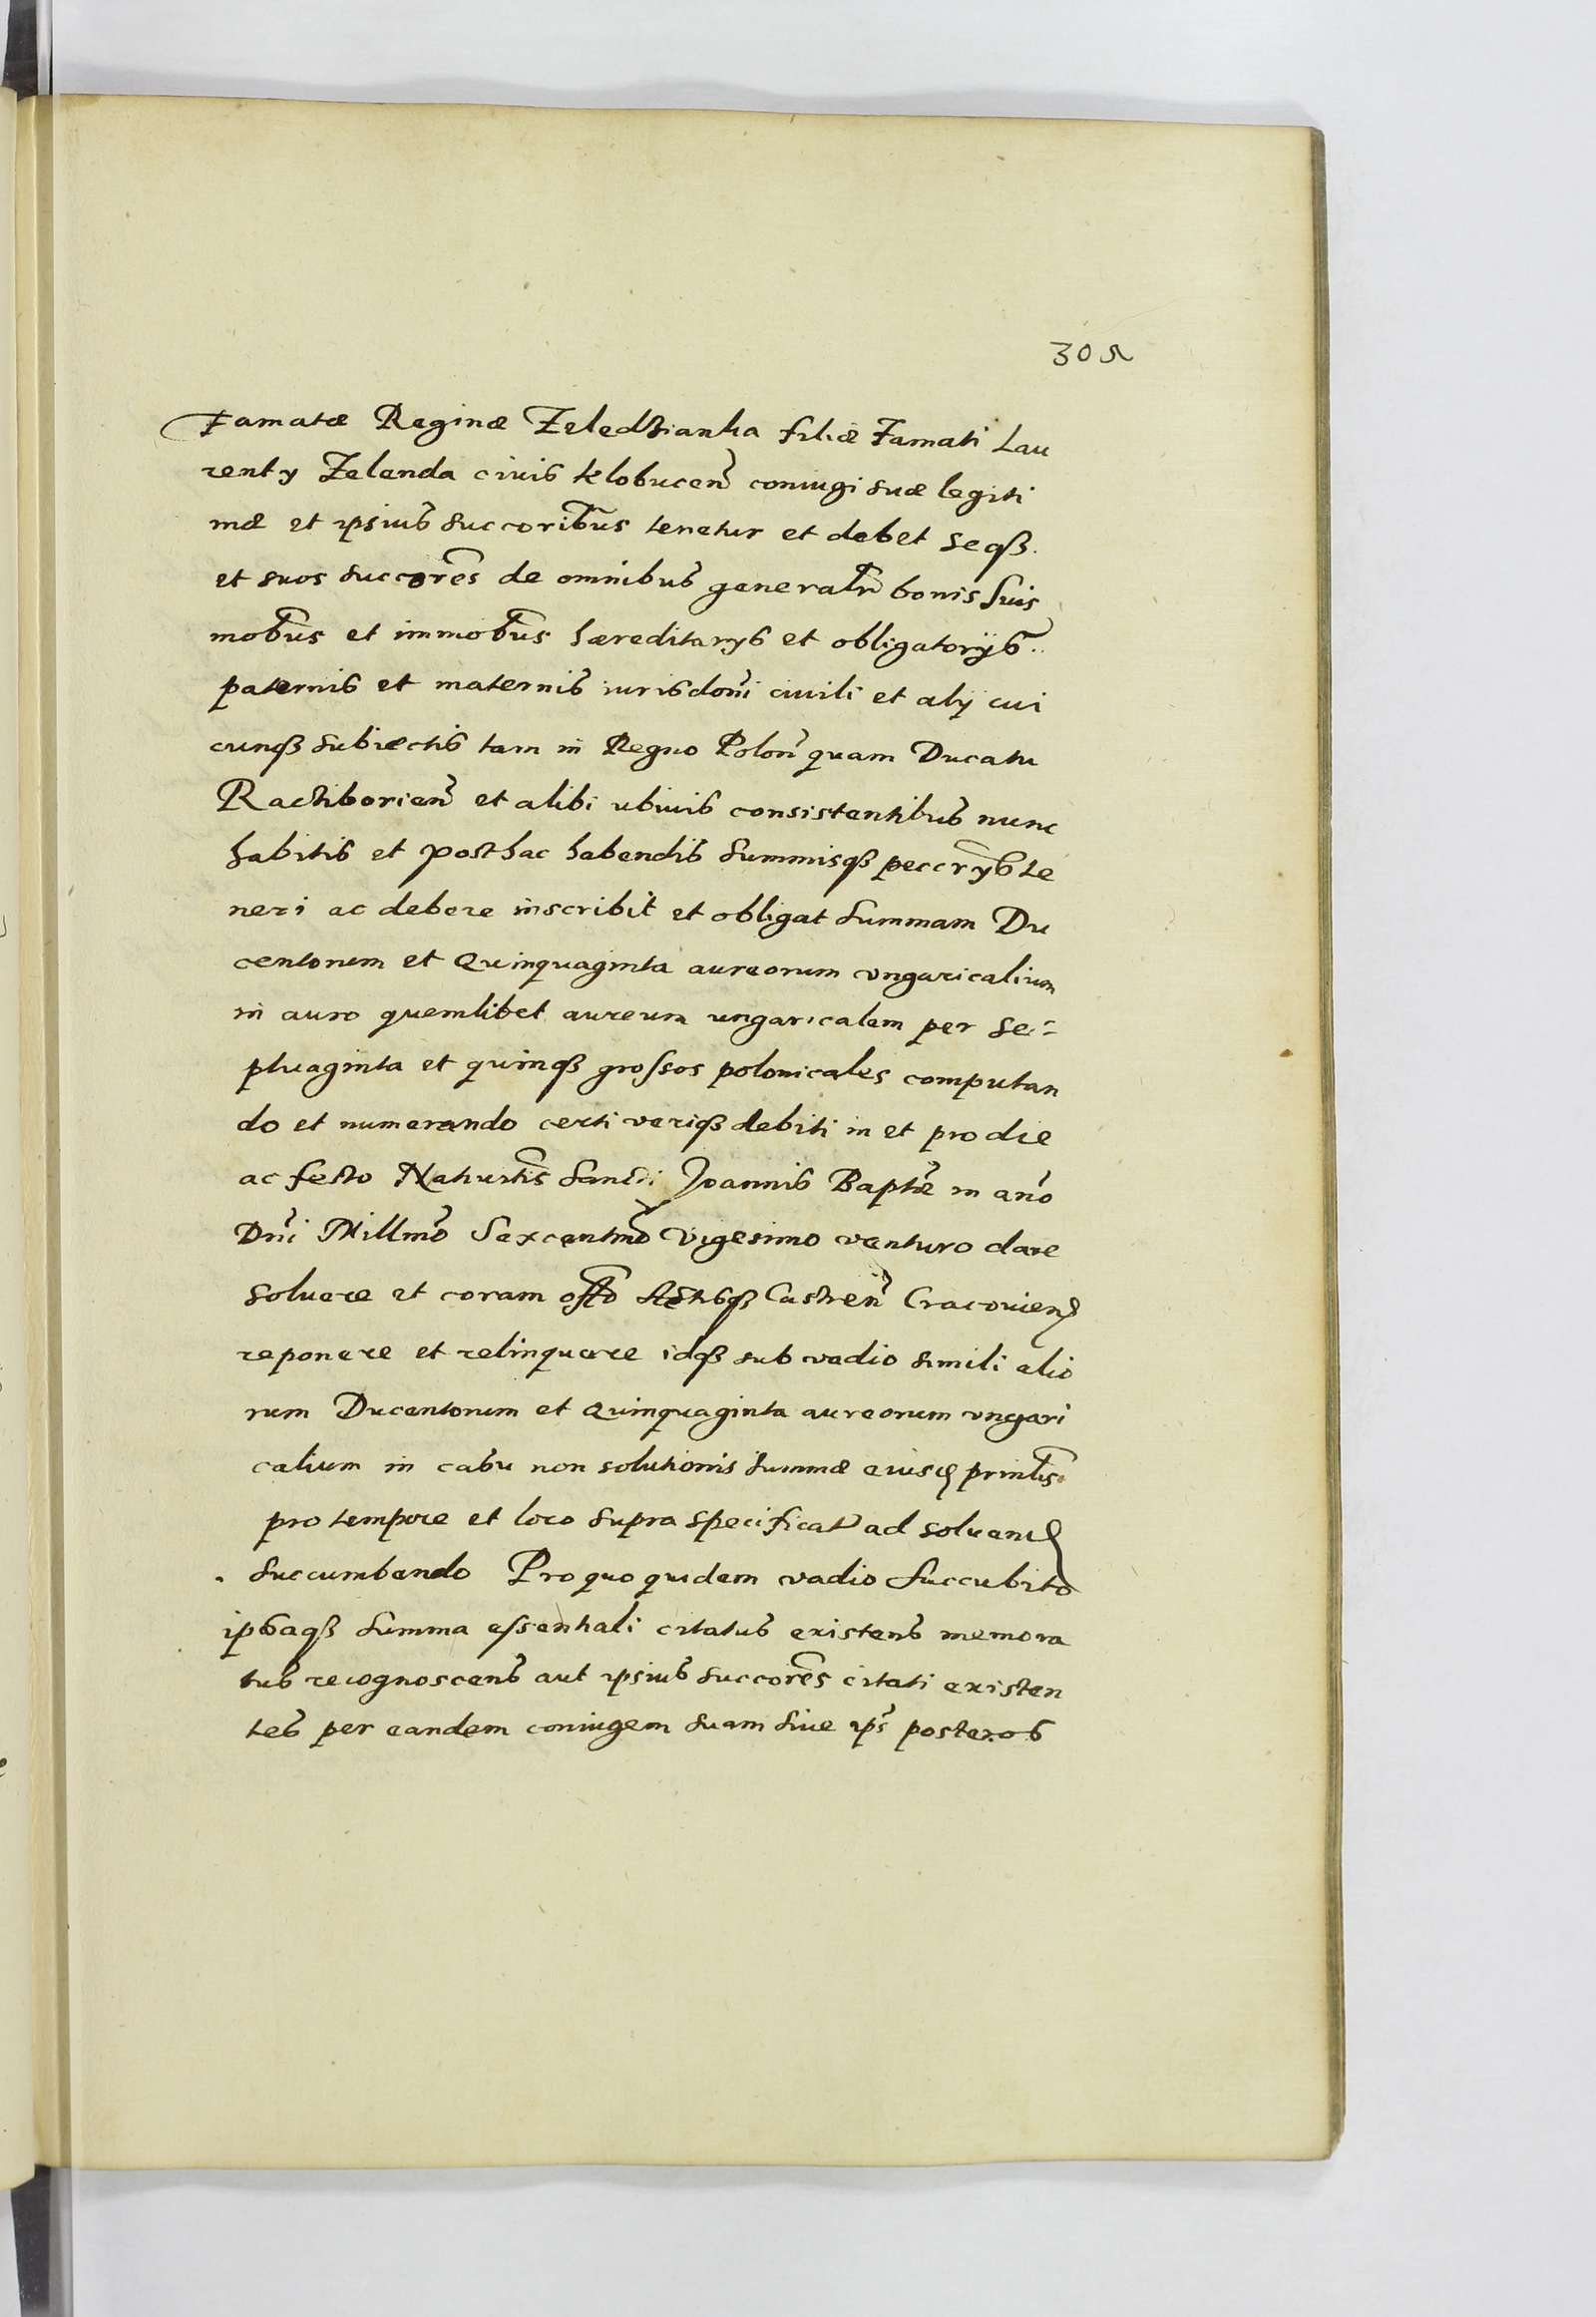 305
Famatæ Reginæ Zeledzianka filiæ Famati Lau
renty Zelenda civis Klobucen coniugi suæ legiti
mæ et ipsius succoribus tenetur et debet seqß
et suos succores de omnibus generalr bonis suis
mobus et immobus hæreditarys et obligatorijs
paternis et maternis iurisdoni civili et alij cui
cunqß subiectis tam in Regno Polon quam Ducatu
Ractiborien et alibi ubivis consistentibus nunc
habitis et posthac habendis summisqß peccrys te
neri ac debere inscribit et obligat summam Du
centorum et Quinquaginta aureorum ungaricalium
in auro quemlibet aureum ungaricalem per se=
ptuaginta et quinqß grossos polonicales computan
do et numerando certi veriqß debiti in et pro die
ac festo Nativitis Sancti Joannis Baptæ in ano
Dni Millmo Sexcentmo Vigesimo venturo dare
solvere et coram offo Actisqß Castren Cracovien
reponere et relinquere idqß sub vadio simili alio
rum Ducentorum et Quinquaginta aureorum ungari
calium in casu non solutionis summæ eiusd printis
pro tempore et loco supra specificat ad solvend
succumbendo Pro quo quidem vadio succubito
ipsaqß summa essentiali citatus existens memora
tus recognoscens aut ipsius succores citati existen
tes per eandem coniugem suam sive ips posteros